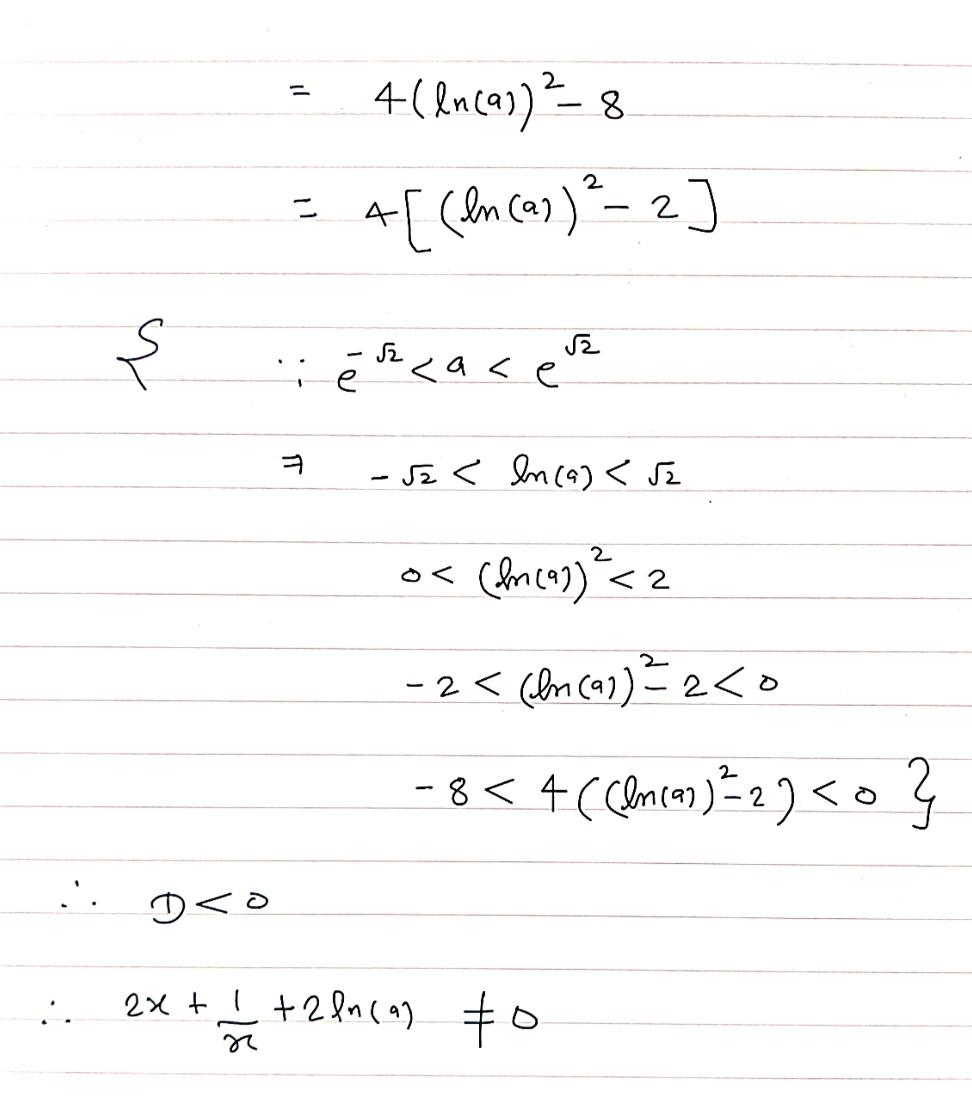 = 4(ln(a))² - 8
= 4[(ln(a))² - 2]
{ ∵ e^-√2 < a < e^√2
⇒ -√2 < ln(a) < √2
0 < (ln(a))² < 2
-2 < (ln(a))² - 2 < 0
-8 < 4((ln(a))² - 2) < 0 }
∴ D < 0
∴ 2x + 1/x + 2ln(a) ≠ 0